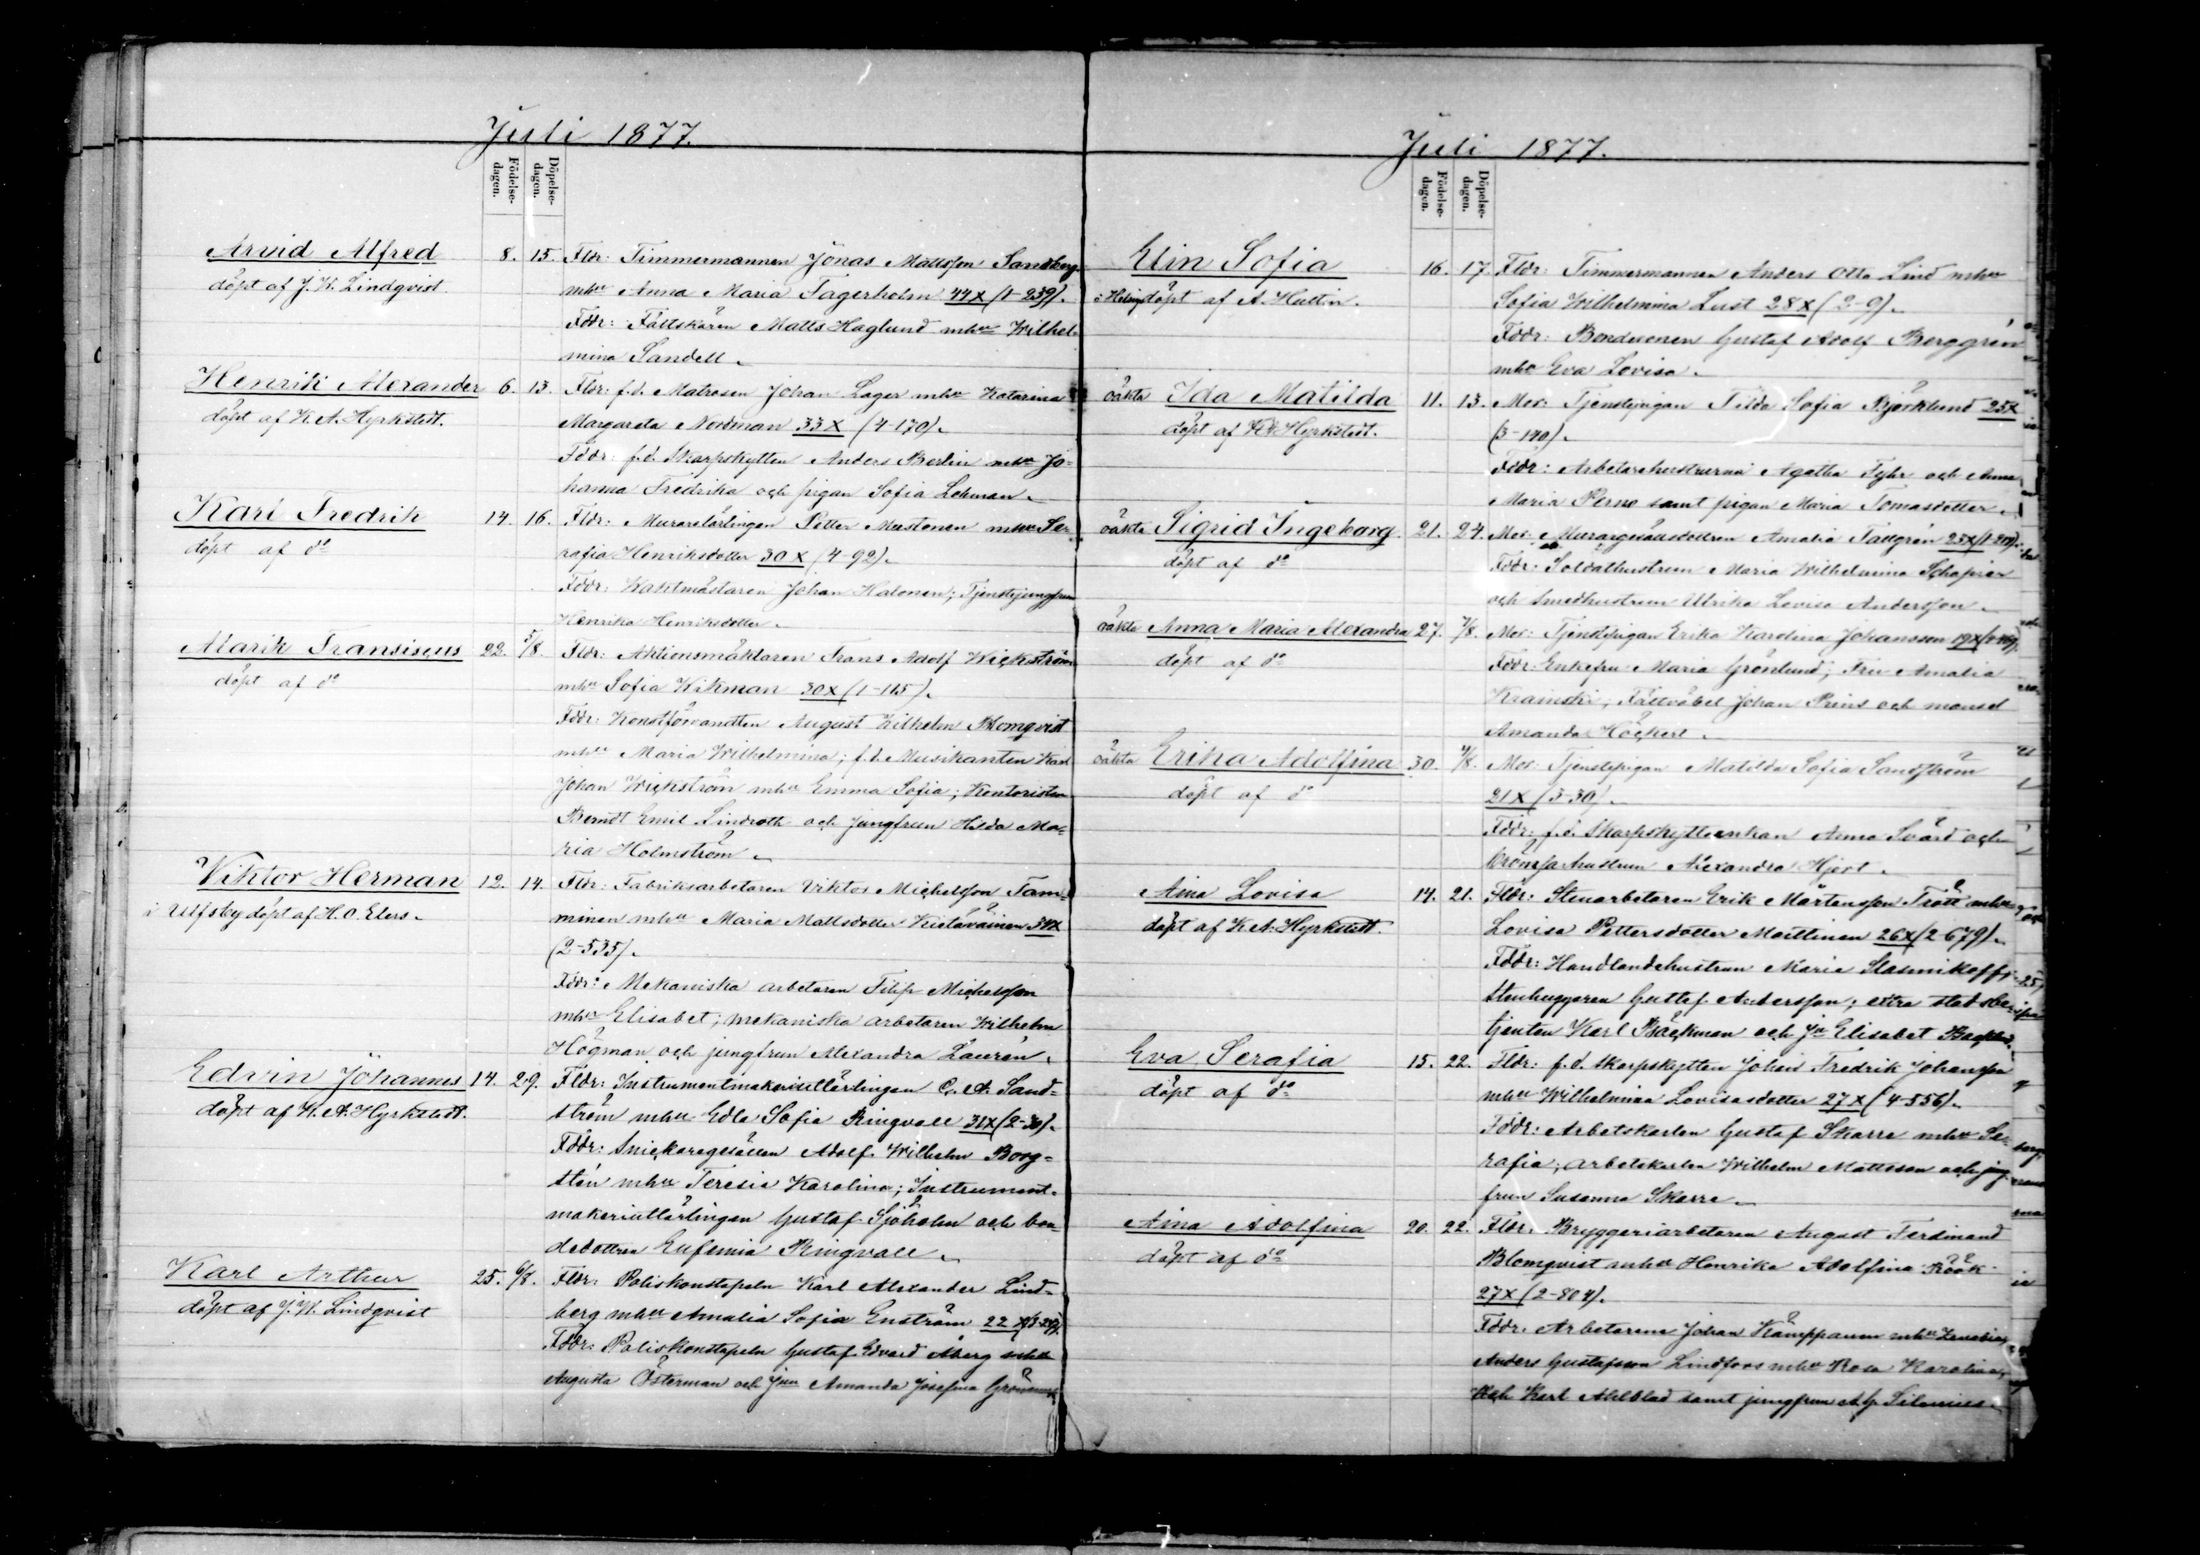 Juli 1877.
Födelse-
dagen.
Döpelse-
dagen.
Arvid Alfred 8. 15. Fldr: Timmermannen Jonas Mattsson Sandberg
döpt af J. W. Lindqvist. mhu Anna Maria Fagerholm 44x (1-239).
Fddr: Fältskären Matts Haglund mhu Wilhel-
mina Sandell.
Henrik Alexander 6. 13. Fldr: f.d. Matrosen Johan Lager mhu Katarina
döpt af K. A. Hyrkstedt. Margareta Nordman 33x (4-170).
Fddr: f.d. Skarpskytten Anders Berlin mhu Jo-
hanna Fredrika och pigan Sofia Lehman.
Karl Fredrik 14. 16. Fldr: Murarelärlingen Petter Mustonen mhu Se-
döpt af do rafia Henriksdotter 30x (4-92).
Fddr: Waktmästaren Johan Halonen; Tjenstejungfrun
Henrika Henriksdotter.
Alarik Fransiscus 22. 5/8. Fldr: Aktionsmäklaren Frans Adolf Wickström
döpt af do mhu Sofia Wikman 30x (1-115).
Fddr: Konstförvandten August Wilhelm Blomqvist
mhu Maria Wilhelmina; f.d. Musikanten Karl
Johan Wickström mhu Emma Sofia; Kontoristen
Berndt Emil Lindroth och jungfrun Hilda Ma-
ria Holmström.
Viktor Herman 12. 14. Fldr: Fabriksarbetaren Viktor Michelsson Tam-
i Ulfsby döpt af H. O. Elers. minen mhu Maria Mattsdotter Kietäväinen
(2-535).
Fddr: Mekaniska arbetaren Filip Michelsson
mhu Elisabet; mekaniska arbetaren Wilhelm
Högman och jungfrun Alexandra Laurén.
Edvin Johannes 14. 29. Fldr: Instrumentmakerietlärlingen C. A. Sand-
döpt af K. A. Hyrkstedt. ström mhu Edla Sofia Ringvall 31x (2-30).
Fddr: Snickaregesällen Adolf Wilhelm Borg-
stén mhu Teresia Karolina; Instrument-
makerietlärlingen Gustaf Sjöholm och bon-
dedottren Eufemia Ringvall.
Karl Arthur 25. 6/8. Fldr: Poliskonstapeln Karl Alexander Lind-
döpt af J. W. Lindqvist berg mhu Amalia Sofia Enström 22x
Fddr: Poliskonstapeln Gustaf Edvard Åberg mhu
Augusta Österman och Jun Amanda Josefina
Juli 1877.
Födelse-
dagen.
Döpelse-
dagen.
Elin Sofia 16. 17 Fldr: Timmermannen Anders Otto Lind mhu
i Helsing döpt af A. Hultin. Sofia Wilhelmina Lust 28x (2-9).
Fddr: Bondesonen Gustaf Adolf Berggrén
mhu Eva Lovisa.
oäkta Ida Matilda 11. 13. Mor: Tjenstepigan Tilda Sofia Björklund 25x
döpt af K. A. Hyrkstedt. (3-140).
Fddr: Arbetarehustrurna Agatha Fyhr och Anna
Maria Perno samt pigan Maria Tomasdotter.
oäkta Sigrid Ingeborg 21. 24. Mor: Muraregesällsdottren Amalia Tallgrén 25x
döpt af do Fddr: Soldathustrun Maria Wilhelmina Schapiro
och Smedhustrun Ulrika Lovisa Andersson.
oäkta Anna Maria Alexandra 27. 7/8. Mor: Tjenstepigan Erika Karolina Johansson 19x
döpt af do Fddr: Enkefru Maria Grönlund; Fru Amalia
Krainski; Fältväbel Johan Prins och mamsell
Amanda Höckert.
oäkta Erika Adolfina 30. 4/8. Mor: Tjenstepigan Matilda Sofia Sandström
döpt af do 21x (3-30).
Fddr: f.d. Skarpskytteenkan Anna Svärd och
hustrun Alexandra Hjert.
Aina Lovisa 14. 21. Fldr: Stenarbetaren Erik Mårtensson Trött mhu
döpt af K. A. Hyrkstedt. Lovisa Pettersdotter Moittinen 26x (2-679).
Fddr: Handlandehustrun Maria Slasnikoff;
Stenhuggaren Gustaf Andersson; extra stadsbe-
tjenten Karl Bäckman och Jn Elisabet
Eva Serafia 15. 22. Fldr: f.d. Skarpskytten Johan Fredrik Johansson
döpt af do mhu Wilhelmina Lovisasdotter 27x (4-556).
Fddr: Arbetskarlen Gustaf Skarre mhu Se-
rafia; arbetskarlen Wilhelm Mattsson och jung-
frun Susanna Skarre.
Aina Adolfina 20. 22. Fldr: Bryggeriarbetaren August Ferdinand
döpt af do Blomqvist mhu Henrika Adolfina Röök
27x (2-804).
Fddr: Arbetarene Johan Kämppanen mhu
Anders Gustafsson Lindfors mhu Rosa Karolina,
och Karl Ahlblad samt jungfrun A. G. Silenius.